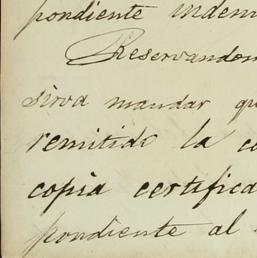 pondiente indem
Reservandom
sirva mandar qu
remitido la co
copia certifica
pondiente al